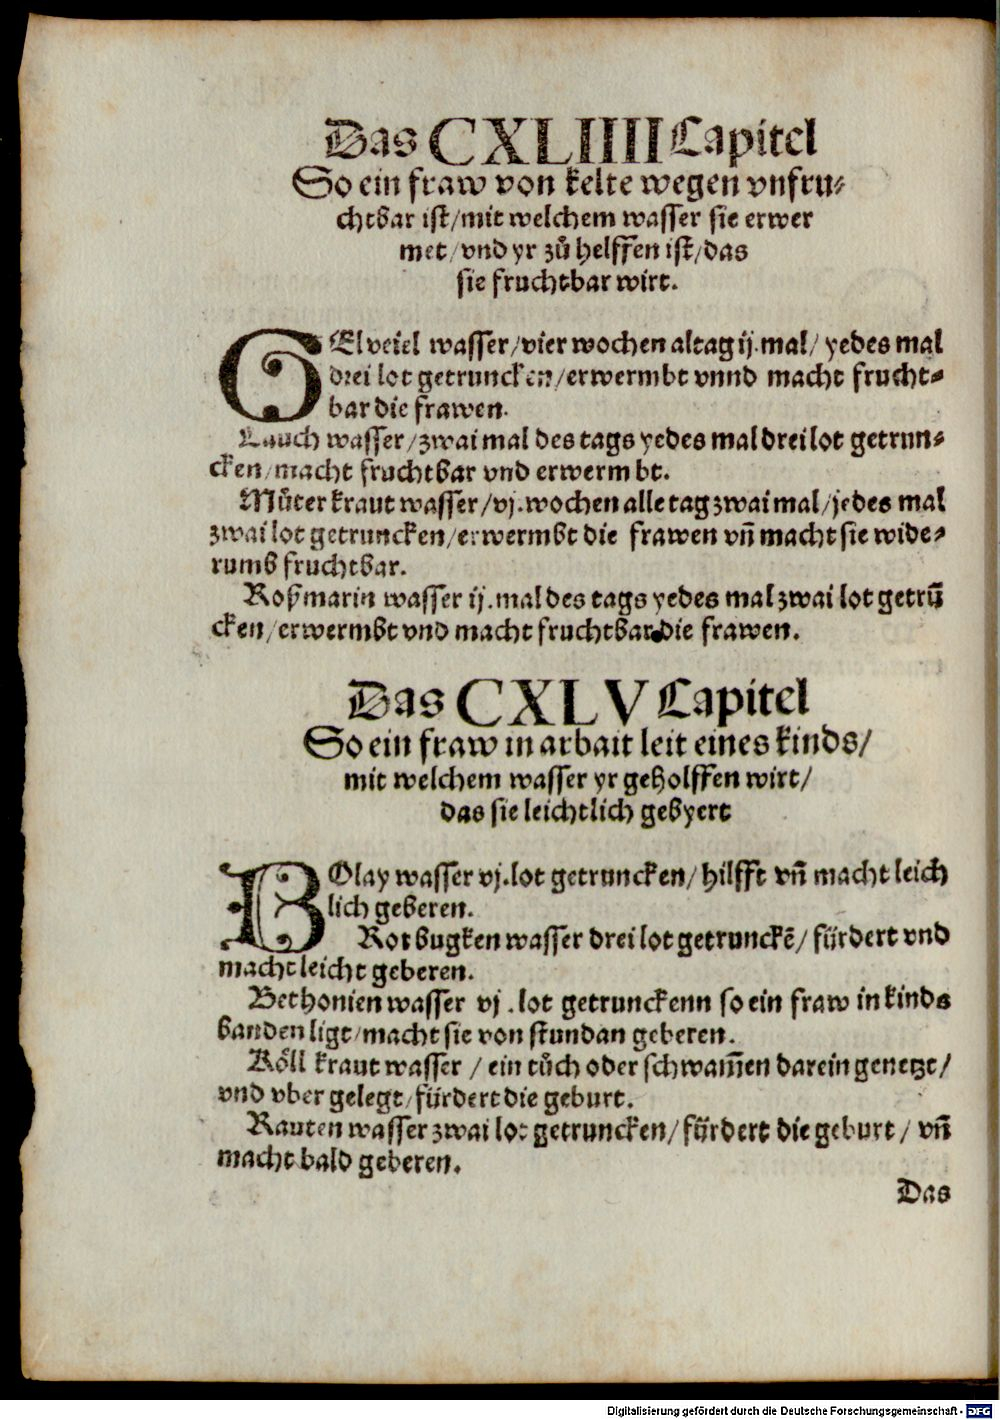 Das CXLIIII Capitel
So ein fraw von kelte wegen vnfru⸗
chtbar ist/mit welchem wasser sie erwer
met/vnd yr zů helffen ist/das
sie fruchtbar wirt.
GElveiel wasser/vier wochen altag ij.mal/ yedes mal
drei lot getruncken/erwermbt vnnd macht frucht⸗
bar die frawen.
Lauch wasser/zwai mal des tags yedes mal drei lot getrun⸗
cken/macht fruchtbar vnd erwermbt.
Můter kraut wasser/vj.wochen alle tag zwai mal/jedes mal
zwai lot getruncken/erwermbt die frawen vn̄ macht sie wide⸗
rumb fruchtbar.
Roßmarin wasser ij.mal des tags yedes mal zwai lot getrū
cken/erwermbt vnd macht fruchtbar die frawen.
Das CXLV Capitel
So ein fraw in arbait leit eines kinds/
mit welchem wasser yr geholffen wirt/
das sie leichtlich gebyert
BOlay wasser vj.lot getruncken/ hilfft vn̄ macht leich
lich geberen.
Rot bugken wasser drei lot getrunckē/ fürdert vnd
macht leicht geberen.
Bethonien wasser vj.lot getrunckenn so ein fraw in kinds
banden ligt/macht sie von stundan geberen.
Röll kraut wasser / ein tůch oder schwam̄en darein genetzt/
vnd vber gelegt/fürdert die geburt.
Rauten wasser zwai lot getruncken/ fürdert die geburt / vn̄
macht bald geberen.
Das
Digitalisierung gefördert durch die Deutsche Forschungsgemeinschaft - DFG